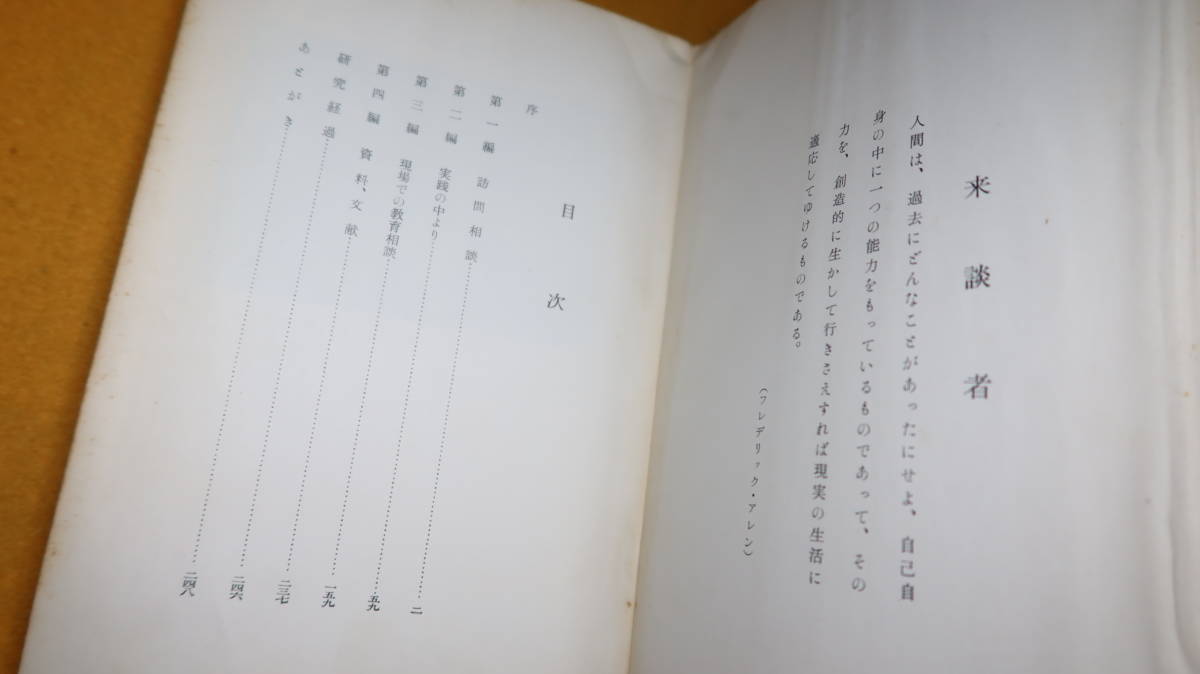 来談者
人間は、過去にどんなことがあったにせよ、自己自
身の中に一つの能力をもっているものであって、その
力を、創造的に生かして行きさえすれば現実の生活に
適応してゆけるものである。
(フレデリック・アレン)
目次
序
第一編 訪問相談……二
第二編 実践の中より……五九
第三編 現場での教育相談……一五九
第四編 資料、文献……二三七
研究経過……二四六
あとがき……二四八